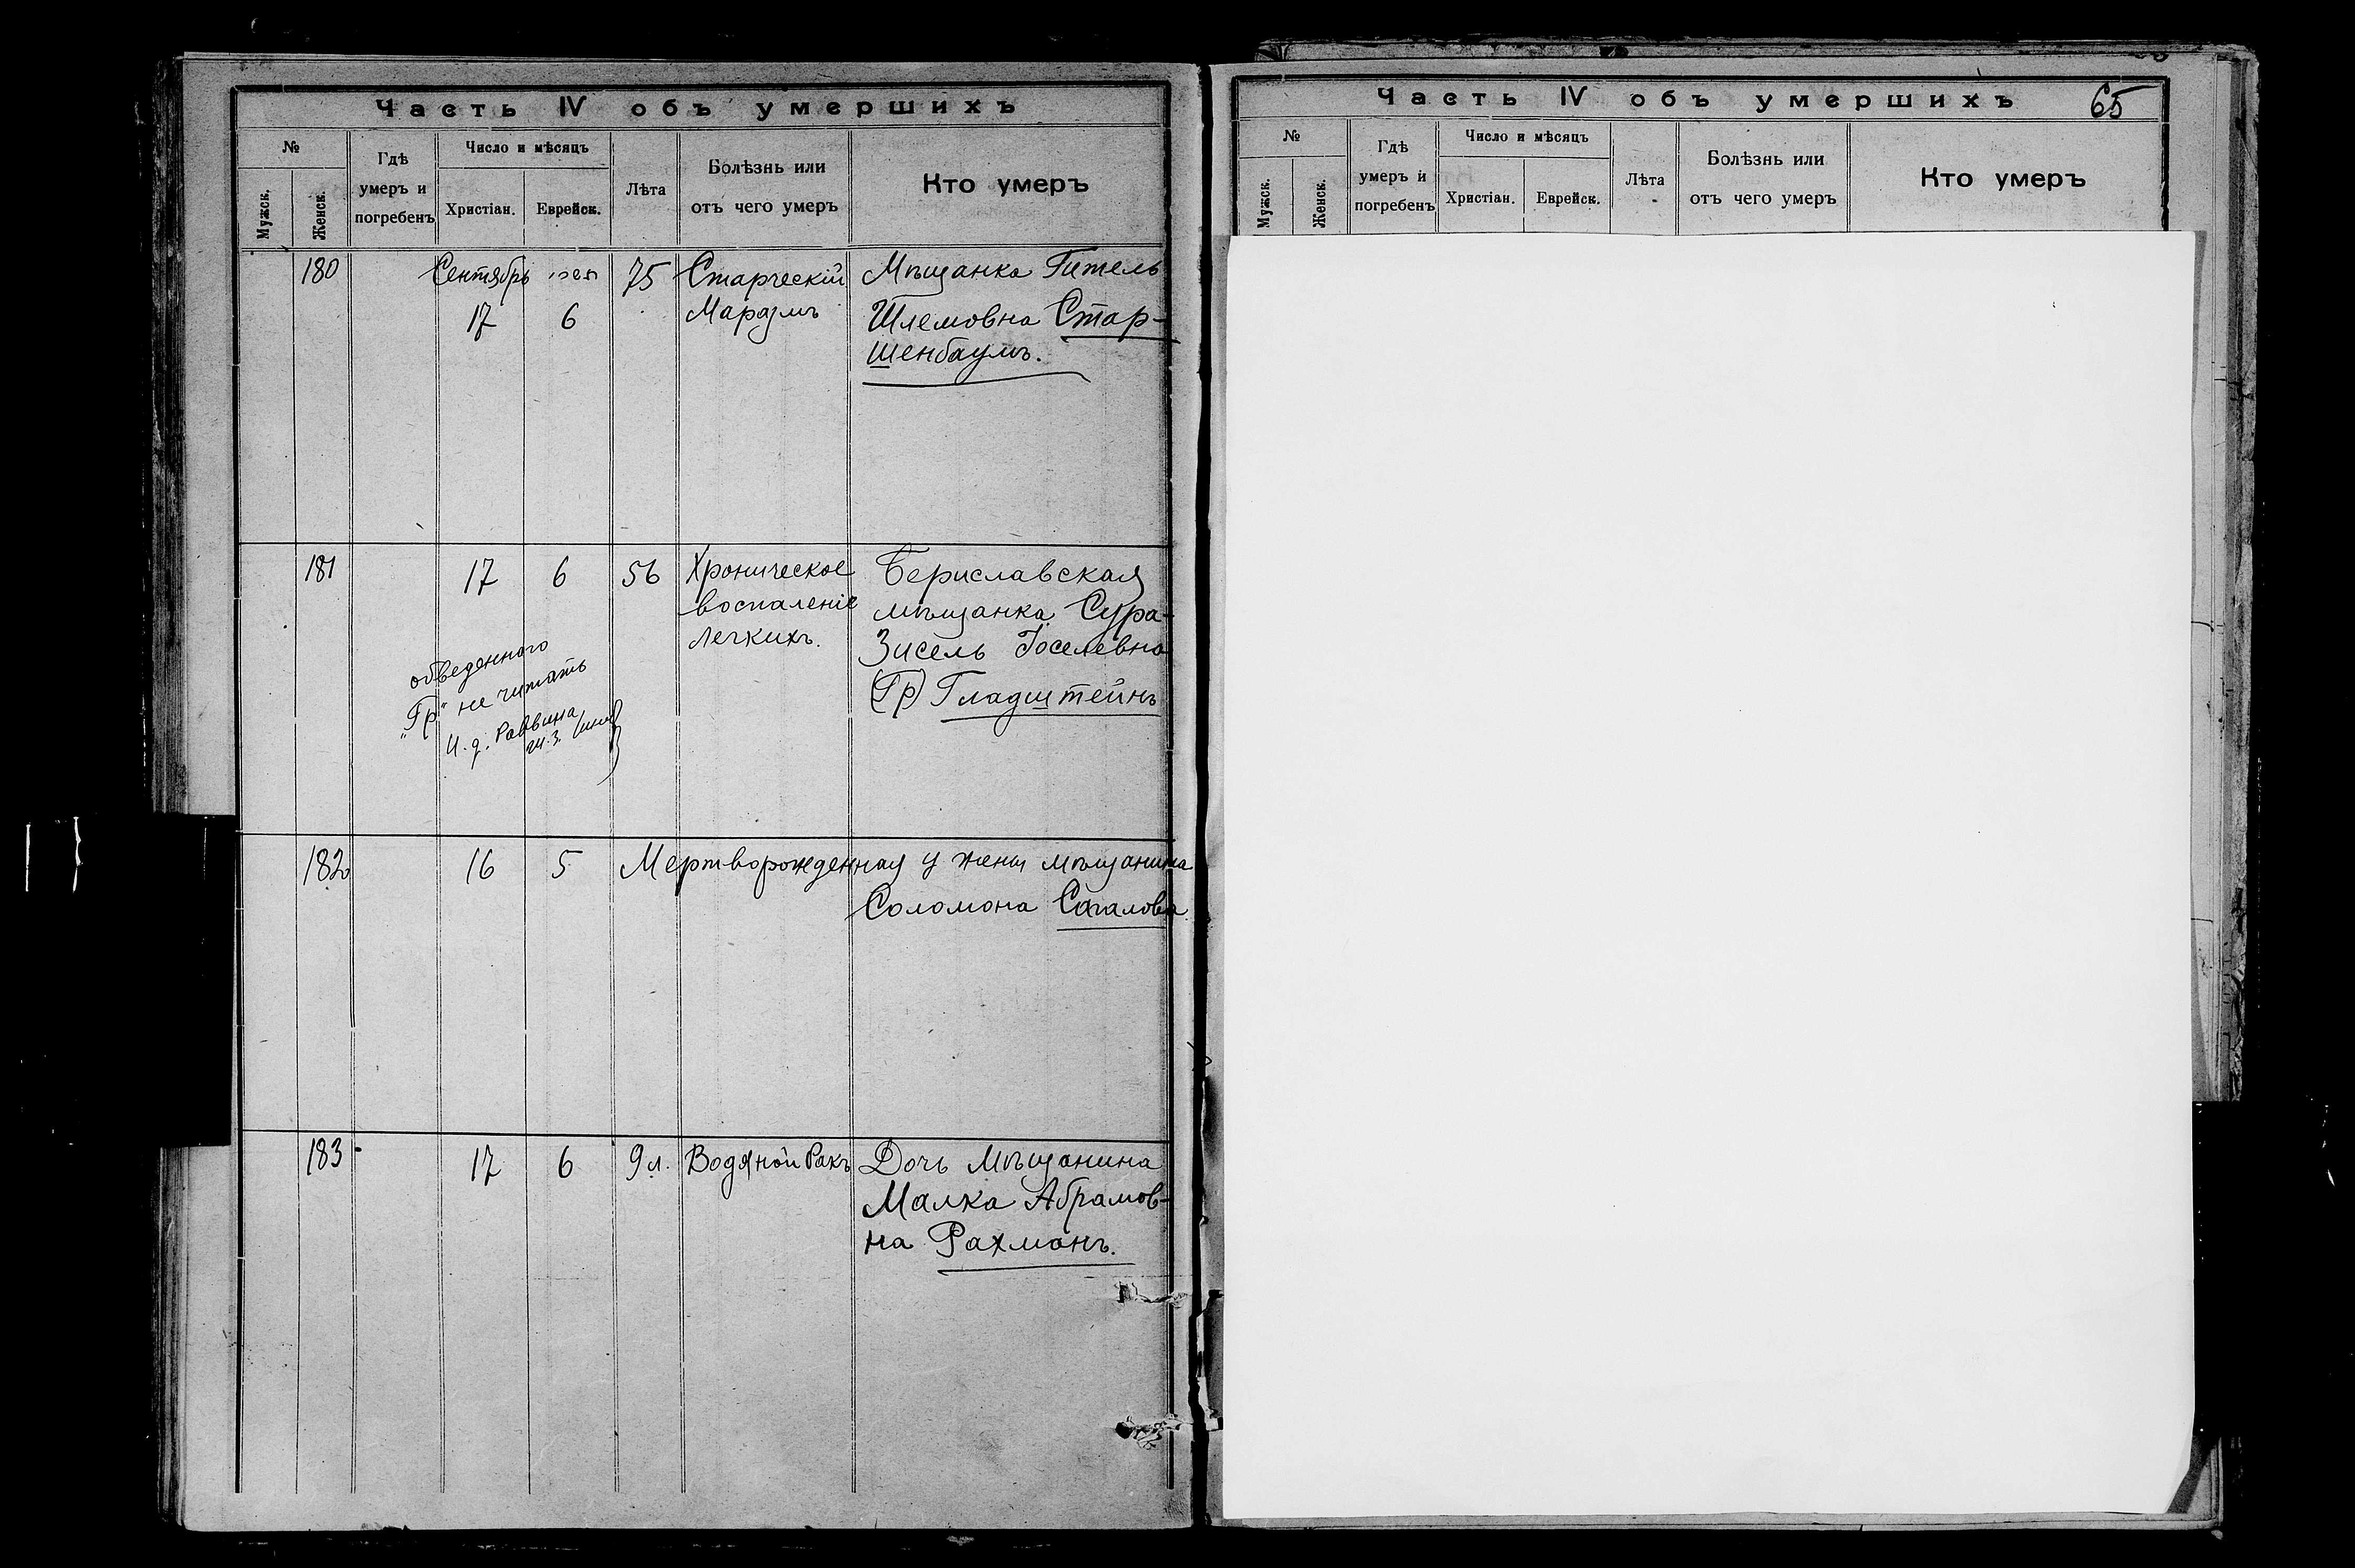 Часть IV объ умершихъ
№
Гдѣ умеръ и погребенъ
Число и мѣсяцъ
Лѣта
Болѣзнь или отъ чего умеръ
Кто умеръ
Мужск.
Женск.
Христіан.
Еврейск.
180 Сентябрь 75 Старческій Мѣщанка Гитель
17 6 Маразмъ Шлемовна Стар-
шенбаумъ.
181 17 6 56 Хроническое Бериславская
воспаленіе мѣщанка Сура-
легкихъ. Зисель Іоселевна
(Гр) Гладштейнъ
обведенного
"Гр" не читать
И. д. Раввина
182 16 5 Мертворожденная у жены мѣщанина
Соломона Сагалова
183 17 6 9 л. Водяной Ракъ Дочь Мѣщанина
Малка Абрамов-
на Рахманъ.
Часть IV объ умершихъ 65
№
Гдѣ умеръ и погребенъ
Число и мѣсяцъ
Лѣта
Болѣзнь или отъ чего умеръ
Кто умеръ
Мужск.
Женск.
Христіан.
Еврейск.